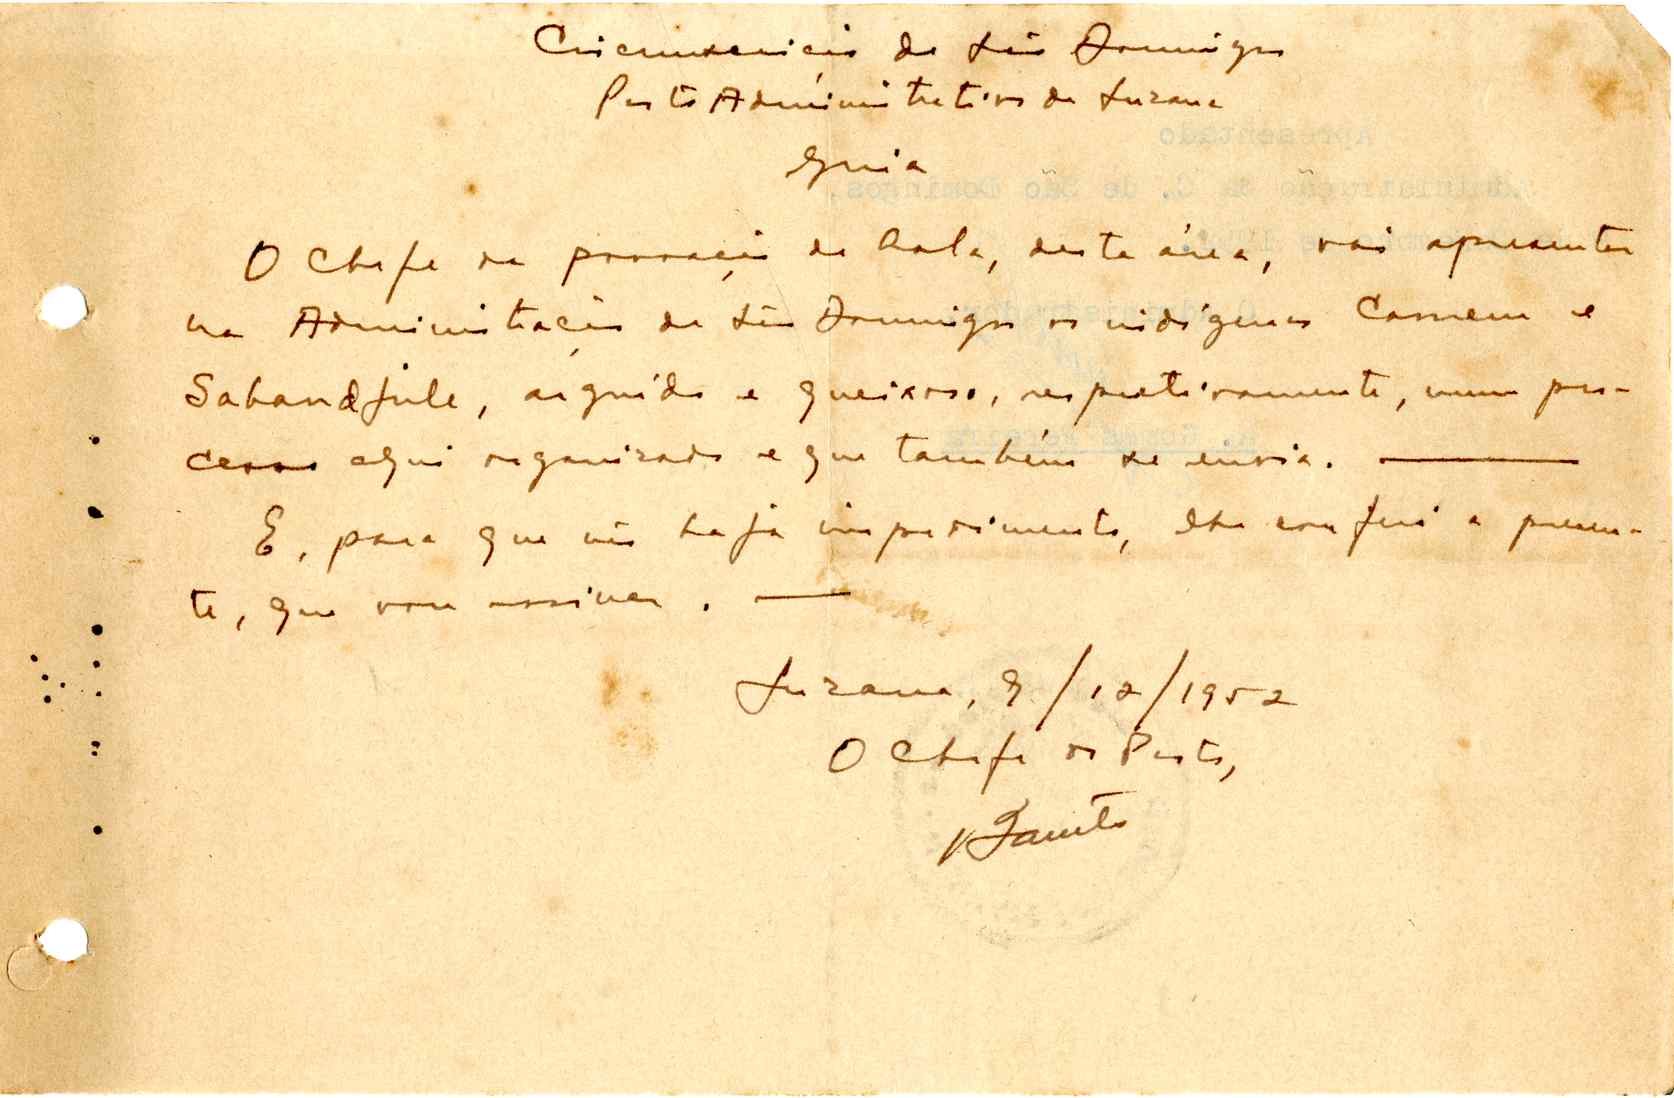 Circunscrição de São Domingos
Posto Administrativo de Suzana
Guia
O Chefe da povoação de Bolá, desta área, vai apresentar
na Administração de São Domingos os indígenas Camem e
Sabandjule, arguido e queixoso, respectivamente, num pro-
cesso aqui organizado e que também se envia.
E, para que não haja impedimento, lhe conferi a presen-
te, que vou assinar.
Suzana, 9/12/1952
O Chefe do Posto,
Apresentado
Administração da C. de São Domingos,
A. Gomes Pereira